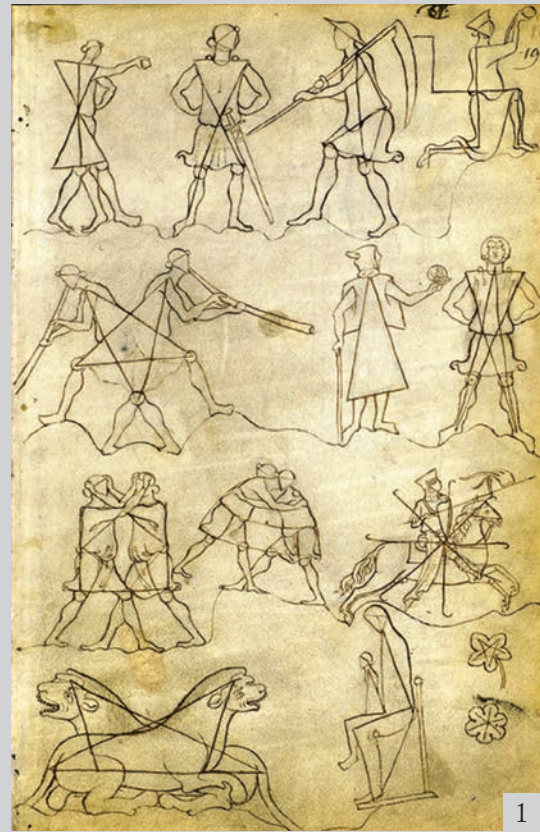 19
1